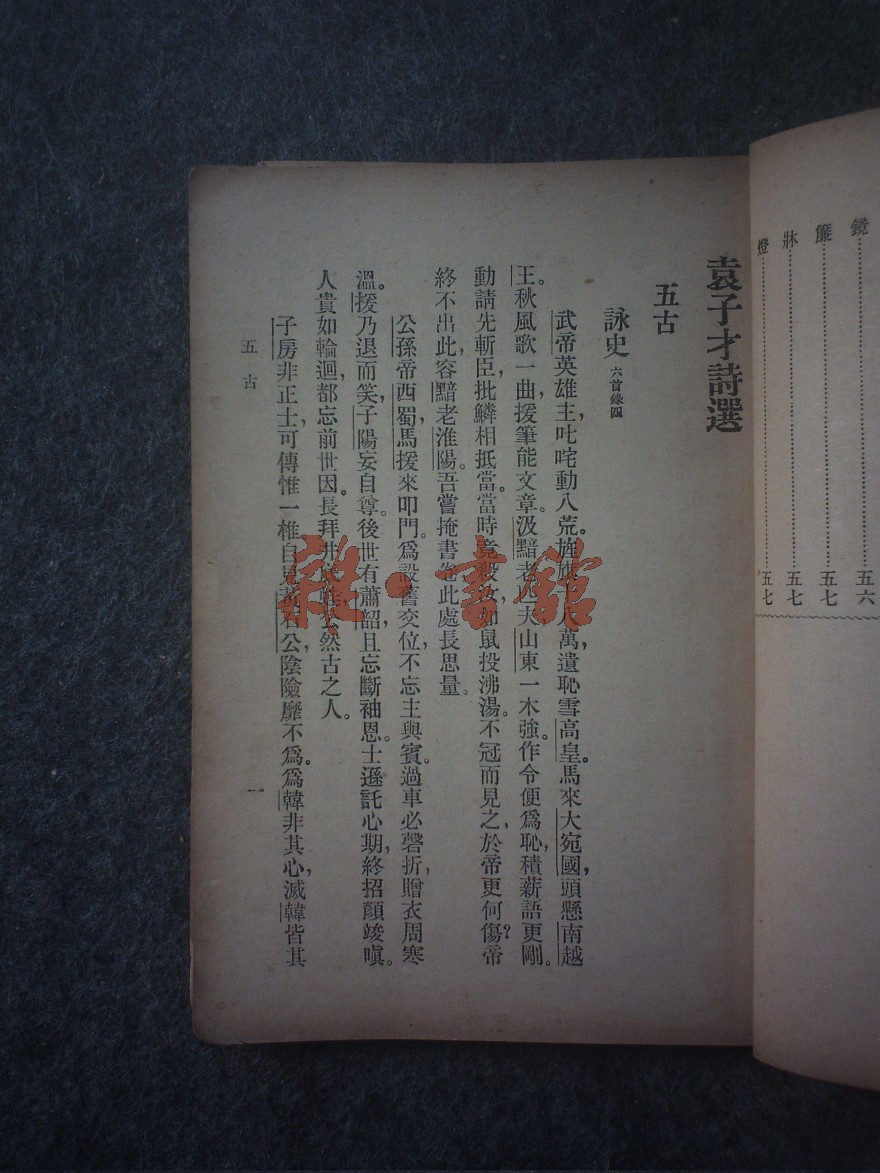 鏡五六
簾五七
牀五七
燈五七
袁子才詩選
五古
詠史 六首錄四
武帝英雄主,叱咤動八荒。旌旗萬,遺恥雪高皇。馬來大宛國,頭懸南越
王。秋風歌一曲,援筆能文章。汲黯老夫,山東一木強。作令便爲恥,積薪語更剛。
動請先斬臣,批鱗相抵當。當時竟殺汝,如鼠投沸湯。不冠而見之,於帝更何傷?帝
終不出此,容黯老淮陽。吾嘗掩書卷此處長思量。
公孫帝西蜀,馬援來叩門。爲設舊交位,不忘主與賓。過車必磬折,贈衣周寒
溫。援乃退而笑,子陽妄自尊。後世有蕭韶,且忘斷袖恩。士遜託心期,終招顏竣嗔。
人貴如輪迴,都忘前世因。長拜井然古之人。
子房非正士,可傳惟一椎。自見黃石公,陰險靡不爲。爲韓非其心,滅韓皆其
五古
一
雜·書館